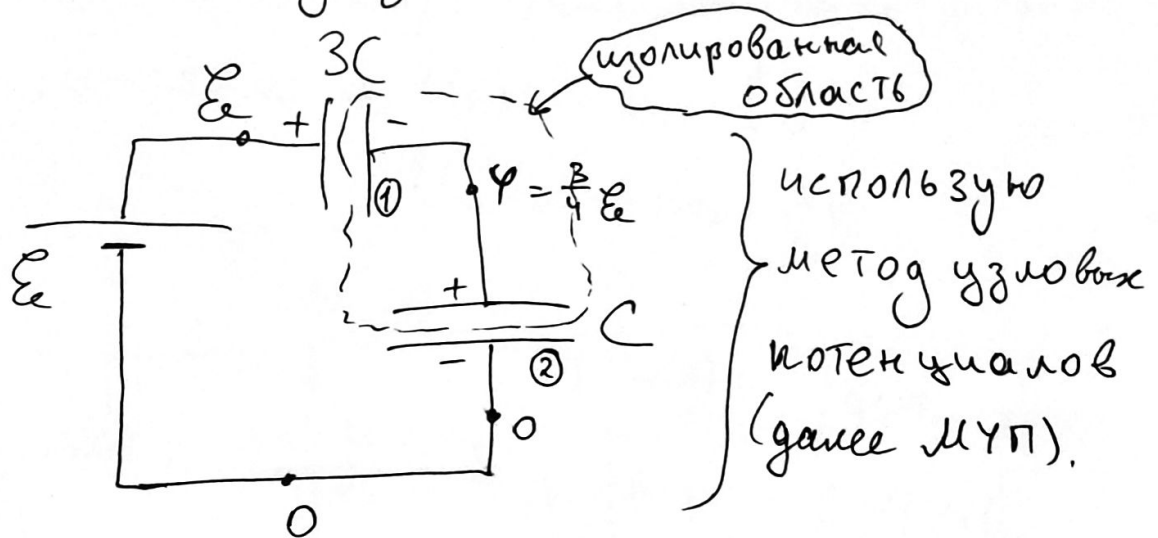 3C
изолированная
область
ℰ
+
-
①
φ = 3/4 ℰ
использую
метод узловых
потенциалов
(далее МУП).
ℰ
+
C
-
②
0
0